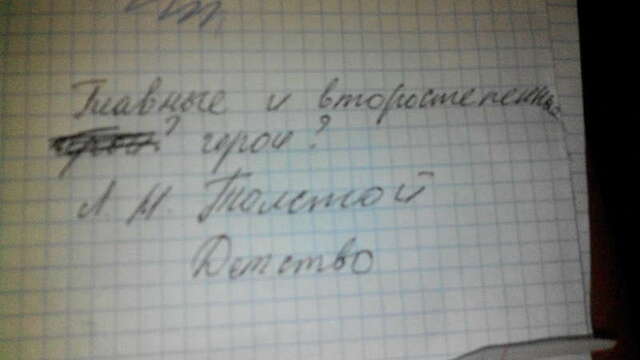 Главные и второстепенны
? герои?
Л. Н. Толстой
Детство